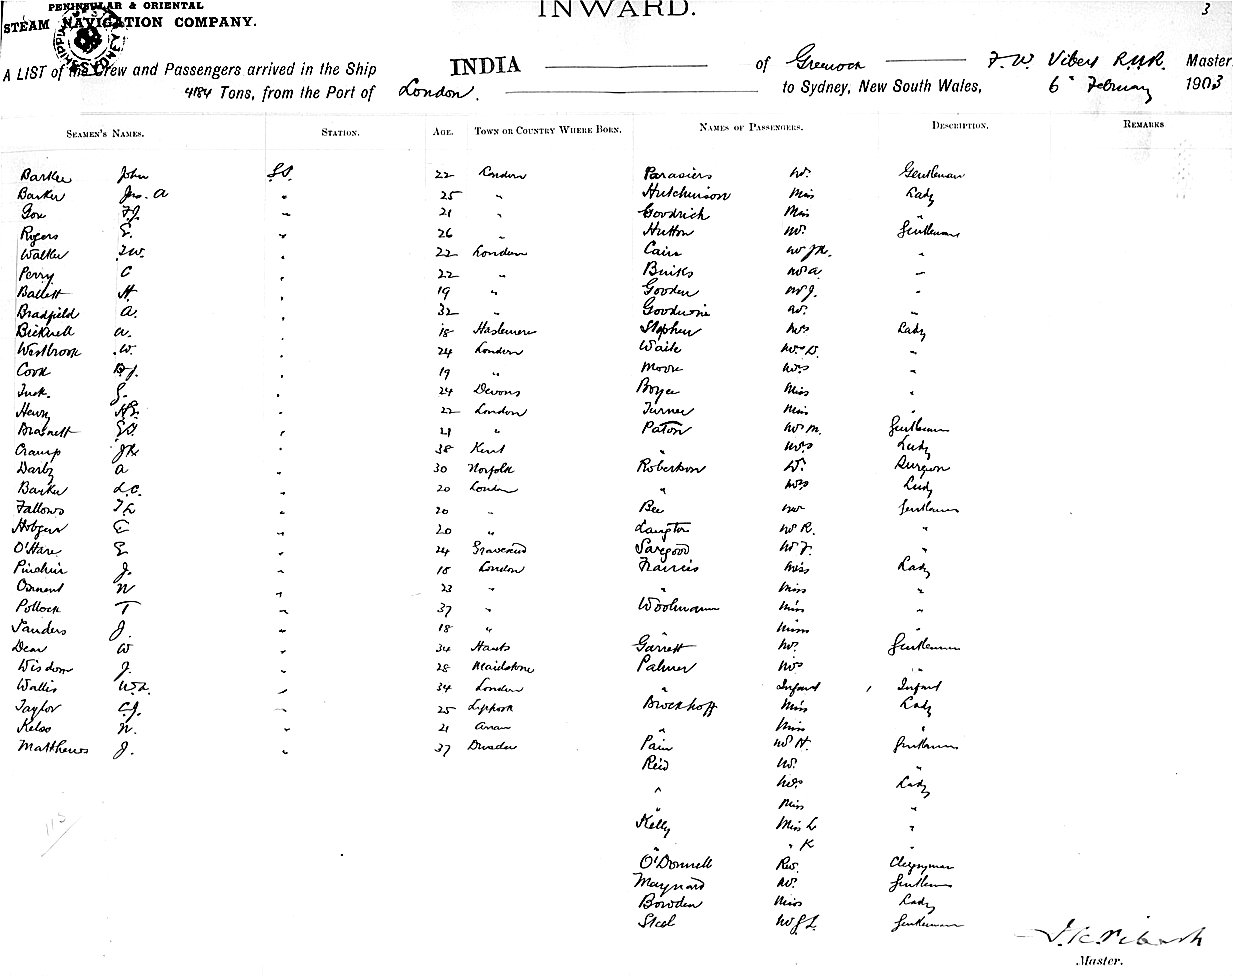 PENINSULAR & ORIENTAL
STEAM NAVIGATION COMPANY.
INWARD.
3
A LIST of the Crew and Passengers arrived in the Ship INDIA of Greenock F. W. Vibert R.N.R. Master
4184 Tons, from the Port of London. to Sydney, New South Wales, 6th February 1903
SEAMEN'S NAMES. STATION. AGE. TOWN OR COUNTRY WHERE BORN. NAMES OF PASSENGERS. DESCRIPTION. REMARKS
Barker John 22 London Mr. Gentleman
Barker Jno. A " 25 " Hutchinson Miss Lady
" 21 " Goodrich Miss "
Rogers E. " 26 " Hutton Mr. Gentleman
Walker " 22 London Cain Mr "
Perry C " 22 " Mr A "
Ballett H " 19 " Gooden Mr J. "
Bradfield A. " 32 " Goodwin Mr. "
Bicknell A. " 18 Haslemere Stephen Mrs Lady
Westbrook W. " 24 London Waite Mrs D. "
Cook " 19 " Moore Mrs "
Tuck. " 24 Devons Boyce Miss "
Henry " 22 London Turner Miss "
Brasnett " 21 " Paton Mr M. Gentleman
Cramp " 38 Kent " Mrs Lady
Darby A " 30 Norfolk Robertson Dr. Surgeon
Barker L.C. " 20 London " Mrs Lady
Fallows " 20 " Bee Mr Gentleman
E " 20 " Langton Mr R. "
O'Hare E " 24 Gravesend Sargood Mr F. "
J. " 18 London Harris Miss Lady
N " 23 " " Miss "
Pollock T " 37 " Woolmann Miss "
Sanders J. " 18 " " Miss
Dear W " 34 Hants Garrett Mr. Gentleman
Wisdom J. " 28 Maidstone Palmer Mrs "
Wallis " 34 London " Infant Infant
Taylor C.J. " 25 Liphook Brockhoff Miss Lady
Kelso N. " 21 Arran " Miss "
Matthews J. " 37 Dresden Pain Mr H. Gentleman
Reid Mr. "
" Mrs Lady
" Miss "
Kelly Miss L "
" " K "
O'Donnell Rev. Clergyman
Maynard Mr. Gentleman
Bowden Miss Lady
Steel Mr Gentleman
115
Master.